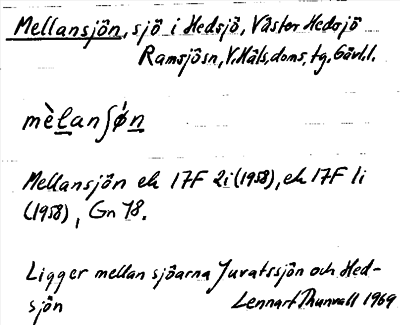 Mellansjön, sjö i Hedsjö, Väster Hedsjö
Ramsjösn, V. Häls, doms, tg, Gävl. l.
mèlanʃøn
Mellansjön ek 17F 2i (1958), ek 17F 1i
(1958), Gn 78.
Ligger mellan sjöarna Juvatssjön och Hed-
sjön
Lennart Thunvall 1969